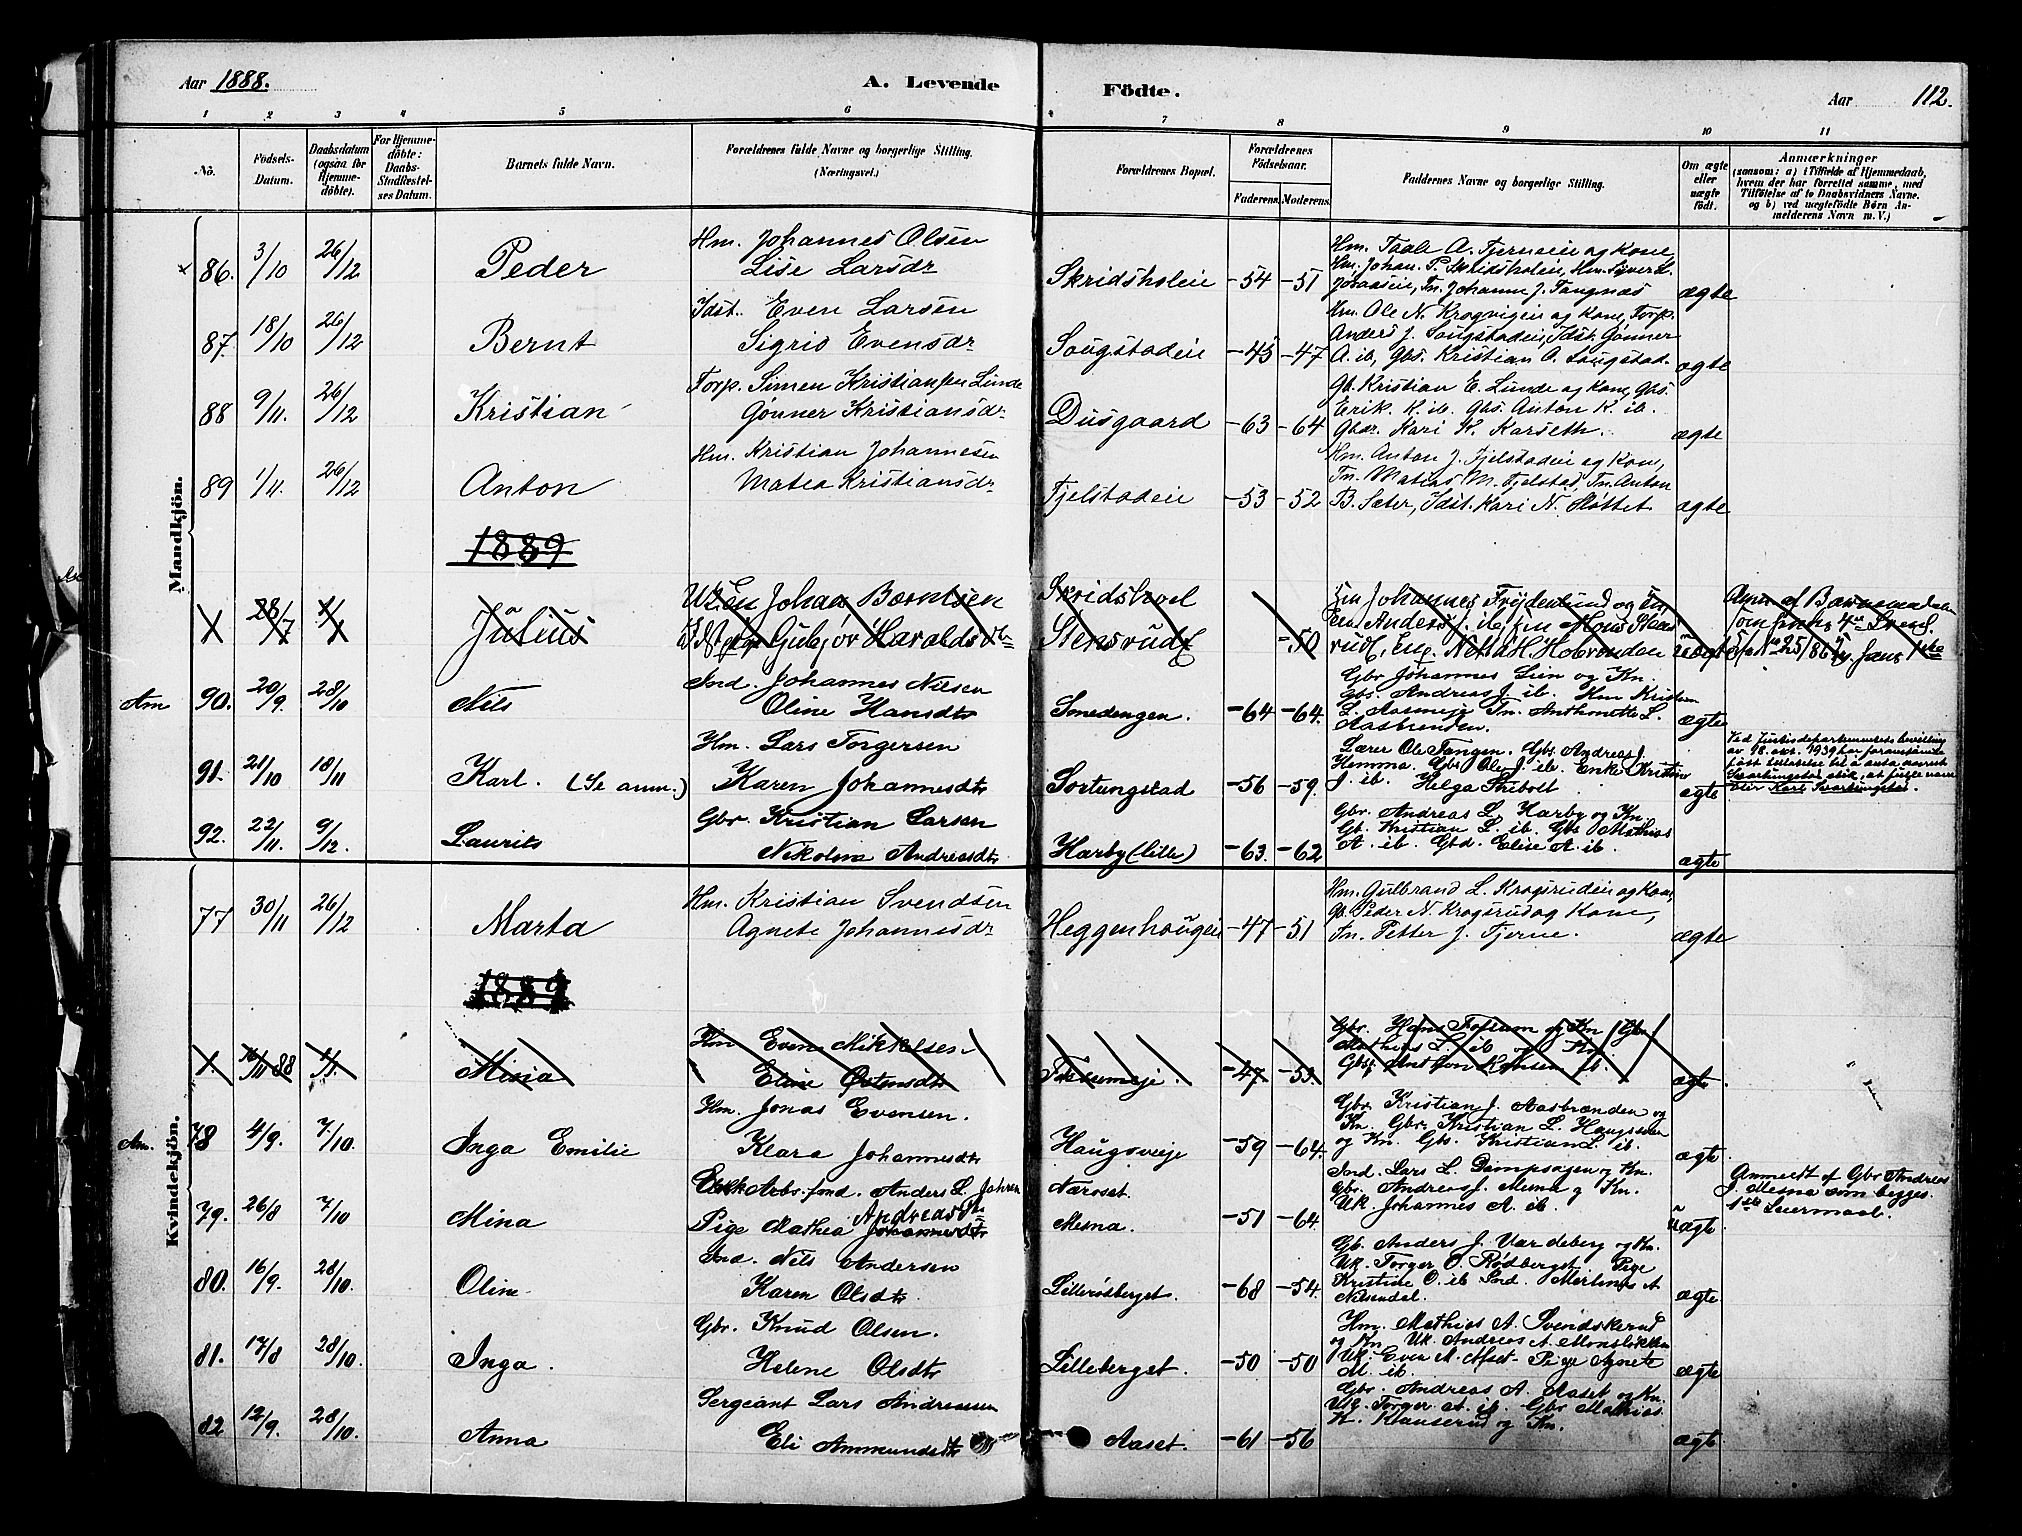 Aar 1888. A. Levende Födte. Aar 112.
1 2 3 4 5 6 7 8 9 10 11
No. Födsels-Datum. Daabsdatum (ogsaa for Hjemme-döbte). For Hjemme-döbte: Daabs-Stadfæstel-ses Datum. Barnets fulde Navn. Forældrenes fulde Navne og borgerlige Stilling. (Næringsvei.) Forældrenes Bopæl. Forældrenes Födselsaar. Faderens. Moderens. Faddernes Navne og borgerlige Stilling. Om ægte eller uægte födt. Anmærkninger (saasom: a) i Tilfælde af Hjemmedaab, hvem der har forrettet samme, med Tilföielse af to Daabsvidners Navne, og b) ved uægtefödte Børn An-melderens Navn m. V.)
Mandkjön.
x 86. 3/10 26/12 Peder Hm. Johannes Olsen
Lise Larsdr Skridsholeie -54 -51 Hm. Taale A. Tjerneeie og Kone,
Hm. Johan P. Skridsholeie, Hm. Syver L.
Joraaseie, Tn. Johanne J. Tangnæs ægte
87 18/10 26/12 Bernt Idst. Even Larsen
Sigrid Evensdr Sougstadeie -45 -47 Hm. Ole N. Krogvigeie og Kone, Torp.
Anders J. Sougstadeie, Idst. Gønner
A. ib, Gbs. Kristian A. Sougstad. ægte
88 9/11. 26/12 Kristian Torp. Simen Kristiansen Lunde
Gønner Kristiansdr Dusgaard -63 -64 Gb. Kristian E. Lunde og Kone, Gbs.
Erik K. ib. Gbs. Anton K. ib.
Gbdr. Kari K. Karseth. ægte
89 1/11. 26/12 Anton Hm. Kristian Johannesen
Matea Kristiansdr Fjelstadeie -53 -52 Hm. Anton J. Fjelstadeie og Kone,
Tn. Matias M. Fjelstad, Tn. Anton
B. Sæter, Idst. Kari N. Slottet ægte
1889
X 28/7 Julius Johan Berntsen
Gubjør Haraldsdtr Skridshol
Stensrud -50 Johannes Frydenlund og
Anders J. ib.
uægte
Am 90. 20/9. 28/10 Nils Ind. Johannes Nilsen
Oline Hansdtr Smedengen. -64 -64. Gbr Johannes Lien og Kn.
Gbs. Andreas J. ib. Hm Kristian
L. Aasmeje Tn. Anthonette L.
Aasbrenden. ægte
91. 21/10 18/11 Karl. (Se anm.) Hm. Lars Torgersen
Karen Johannesdtr Sortungstad -56 -59. Lærer Ole Tangen. Gbs. Andreas J.
Hemma. Gbs. Ole J. ib. Enke Kristine
J. ib. Helga Stibolt ægte Ved Justisdepartementets bevilling
av 98. okt. 1939 har foranstående
født tilladelse til å anta navnet
92. 22/11. 9/12. Laurits Gbr Kristian Larsen
Nikoline Andreasdtr Harby (lille) -63. -62 Gbr. Andreas L. Harby og Kn.
Gb. Kristian L. ib. Gbs. Mathias
A. ib. Gbd. Elise A. ib. ægte
Kvindekjön.
77 30/11 26/12 Marta Hm. Kristian Svendsen
Agnete Johannesdr Heggenhougeie -47 -51 Hm. Gulbrand L. Krogsrudeie og Kone,
Gb. Peder N. Krogsrud og Kone,
Tn. Petter J. Tjerne. ægte
1889
X 16/11 88 Misia Hm Even Mikkelsen
Eline Østensdtr -47 -53. Gbr. Hans Fossum og Kn Gbr.
Mathias L. ib og Kn.
Gbs. Anthon Hansen ib. ægte
Am. 78 4/9. 7/10. Inga Emilie Hm. Jonas Evensen.
Klara Johannesdtr Haugsveje -59 -64. Gbr. Kristian J. Aasbrænden og
Kn. Gbr. Kristian L. Haugsveen
og Kn. Gbs. Kristian L. ib. ægte
79. 26/8 7/10 Mina Arbs. fond. Anders L. Johren
Pige Mathea Andreasdtr Johannesdtr Næroset.
Mesna. -51 -64. Ind. Lars L. Dampsagen og Kn.
Gbr. Andreas J. Mesna og Kn.
Uk. Johannes A. ib. uægte Anmeldt af Gbr Andreas
J. Mesna som begges
1ste Leiermaal.
80. 16/9. 28/10. Oline Ind. Nils Andersen
Karen Olsdtr Lillerødberget. -68 -54. Gb. Anders J. Vardeberg og Kn.
Uk. Torger O. Rødberget. Pige
Kristine O. ib Ind. Martinus A
Nilsendal. ægte
81. 17/8 28/10. Inga. Gbr. Knud Olsen.
Helene Olsdtr Lilleberget. -50 -50 Hm. Mathias A. Svendskerud
og Kn. Uk. Andreas A. Monsløkken
Uk. Even M. Aset. Pige Agnete
M. ib. ægte
82 12/9. 28/10. Anna Sergeant Lars Andreasen
Eli Ammundsdtr Aaset. -61 -56 Gbr. Andreas A. Aaset og Kn.
Uk. Torger A. ib. Gbr Mathias
K. Klanserud og Kn. ægte